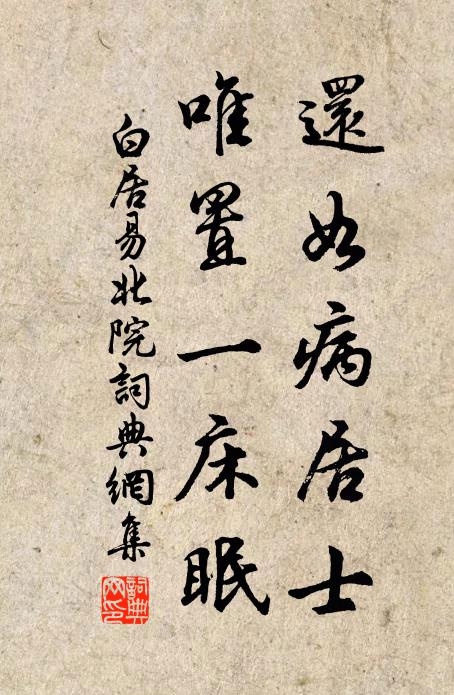 還如病居士
唯置一床眠
白居易北院詞典網集
詞典網印